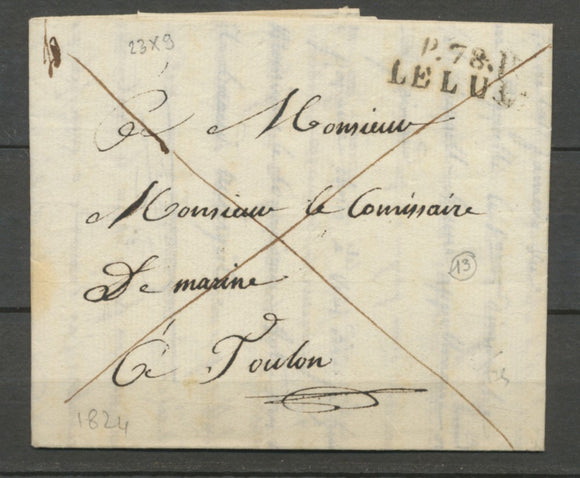 23x9
P.78.P
LE LUC
À Monsieur
Monsieur le Comissaire
De marine
À Toulon
13
1824